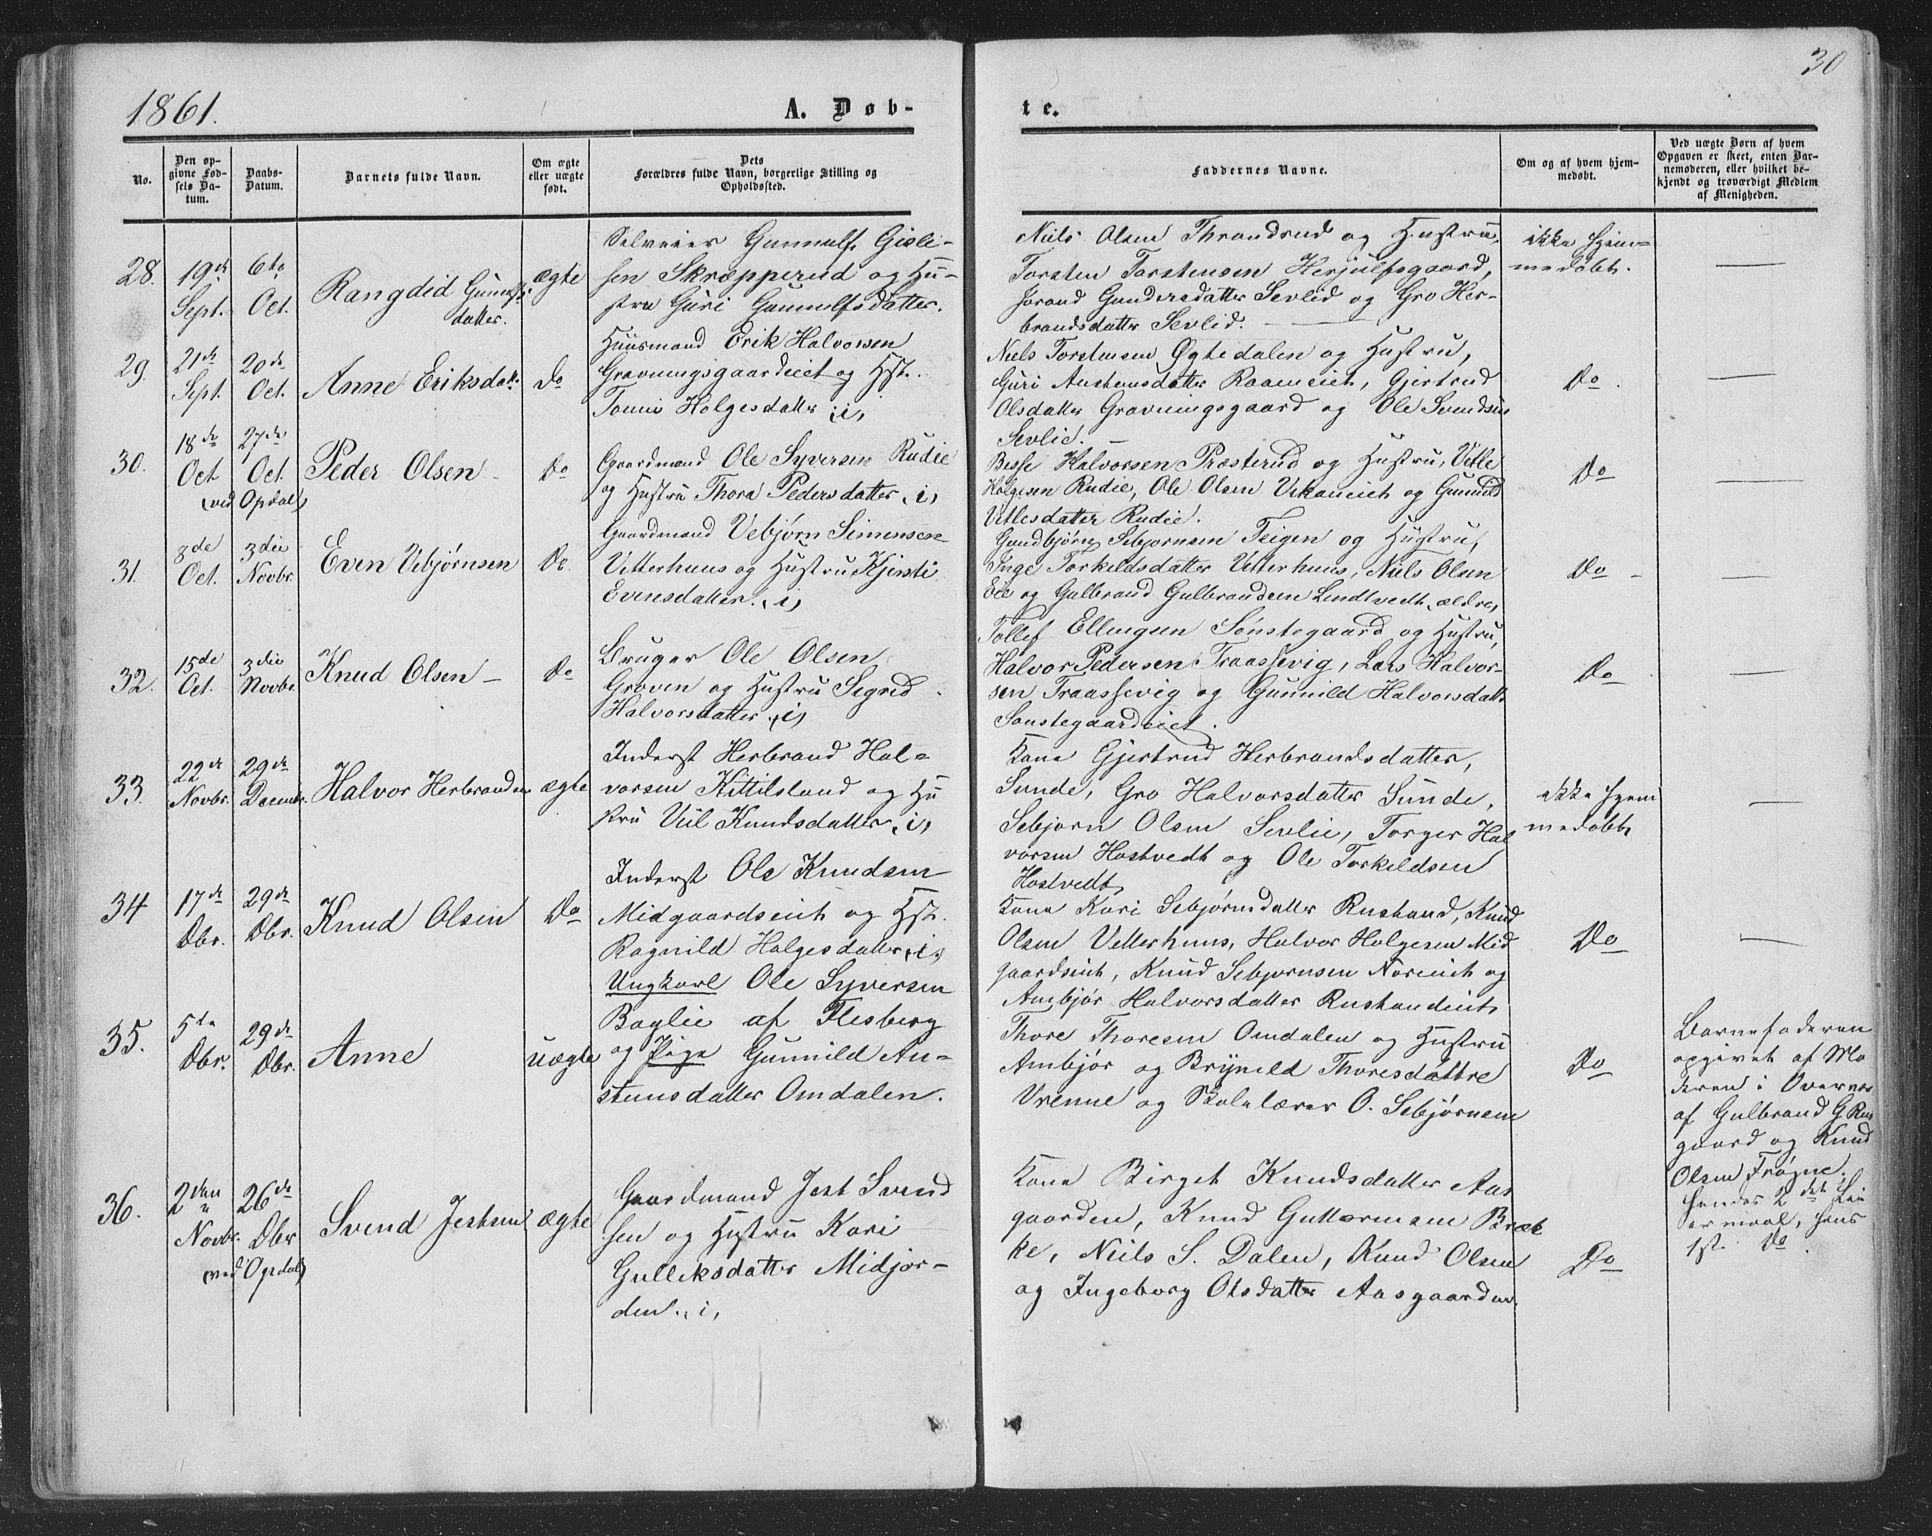 1861.
A. Døb-
te.
30
No.
Den op-
givne Fød-
sels Da-
tum.
Daabs-
Datum.
Barnets fulde Navn.
Om ægte
eller uægte
født.
Dets
Forældres fulde Navn, borgerlige Stilling og
Opholdssted.
Faddernes Navne.
Om og af hvem hjem-
medøbt.
Ved uægte Børn af hvem
Opgaven er skeet, enten Bar-
nemoderen, eller hvilket be-
kjendt og troværdigt Medlem
af Menigheden.
28.
19de
Sept.
6te
Oct.
Rangdid Gunulfs-
datter.
ægte
Selveier Gunnulf Gisle-
sen Skræpperud og Hu-
stru Guri Gunnulfsdatter.
Niels Olsen Throndrud og Hustru,
Torsten Torstensen Herjulfsgaard,
Jorand Gundersdatter Sevlid og Gro Her-
brandsdatter Sevlid.
ikke hjem-
medøbt.
29.
21de
Sept.
20de
Oct.
Anne Eriksdatt.
Do
Huusmand Erik Halvorsen
Gravningsgaardeiet og Hst.
Tonne Holgesdatter i,
Niels Torstensen Øgtedalen og Hustru,
Guri Austensdatter Raaneiet, Gjertrud
Olsdatter Gravningsgaard og Ole Svendsen
Sevlie.
Do
30.
18de
Oct
27de
Oct.
(ved Opdal)
Peder Olsen
Do
Gaardmand Ole Syversen Rudie
og Hustru Thora Pedersdatter i,
Besse Halvorsen Præsterud og Hustru, Vetle
Holgesen Rudie, Ole Olsen Vrkaneiet og Gunnild
Vetlesdatter Rudie.
Do
31.
8de
Oct.
3die
Novbr.
Even Vebjørnsen
Do.
Gaardmand Vebjørn Simensen
Vetterhuus og Hustru Kjersti
Evensdatter. i,
Gundbjørn Sebjornsen Teigen og Hustru,
Inge Torkildsdatter Vetterhuus, Niels Olsen
Eie og Gulbrand Gulbrandsen Lindtvedt, ældre,
Do
32.
15de
Oct.
3die
Novbr.
Knud Olsen
Do
Bruger Ole Olsen
Groven og Hustru Segred
Halvorsdatter i,
Tollef Ellingsen Sønstegaard og Hustru,
Halvor Pedersen Traassevig, Lars Halvor-
sen Traassevig og Gunnild Halvorsdatt.
Sønstegaardeiet.
Do
33.
22de
Novbr.
29de
Decembr.
Halvor Herbrandsen
ægte
Inderst Herbrand Hal-
vorsen Kittilsland og Hu
stru Viil Knudsdatter i,
Kone Gjertrud Herbrandsdatter,
Sunde, Gro Halvorsdatter Sunde,
Sebjorn Olsen Sevlie, Torger Hal
vorsen Hostvedt og Ole Torkeldsen
Hostvedt,
ikke hjem
medøbt
34
17de
Dbr.
29de
Dbr.
Knud Olsen
Do
Inderst Ole Knudsen
Midgaardseiet og Hst.
Ragnild Holgesdatter i,
Kone Kari Sebjørnsdatter Rustand, Knud
Olsen Vetterhuus, Halvor Holgesen Mid
gaardseiet, Knud Sebjørnsen Noreiet og
Anbjør Halvorsdatter Rustandeiet,
Do
35.
5te
Dbr.
29de
Dbr.
Anne
uægte
Ungkarl Ole Syversen
Baglie af Flesberg
og Pige Gunnild Au-
stensdatter Omdalen.
Thore Thoresen Omdalen og Hustru
Anbjør og Brynild Thoresdattre
Vrenne og Skolelærer O. Sebjørnsen
Do
Barnefaderen
opgivet af Mo
deren i Overvær
af Gulbrand G Ruus
gaard og Knud
Olsen Frøgne.
Hendes 2det Lei
ermaal, hans
1st. Do.
36.
2den
Novbr.
26de
Dbr
(ved Opdal)
Svend Jestsen
ægte
Gaardmand Jest Svend
sen og Hustru Kari
Gulliksdatter Midjor-
den. i,
Kone Birget Knudsdatter Aas
gaarden, Knud Guttormsen Bræk
ke, Niels S. Dalen, Knud Olsen
og Ingeborg Olsdatter Aasgaarden.
Do